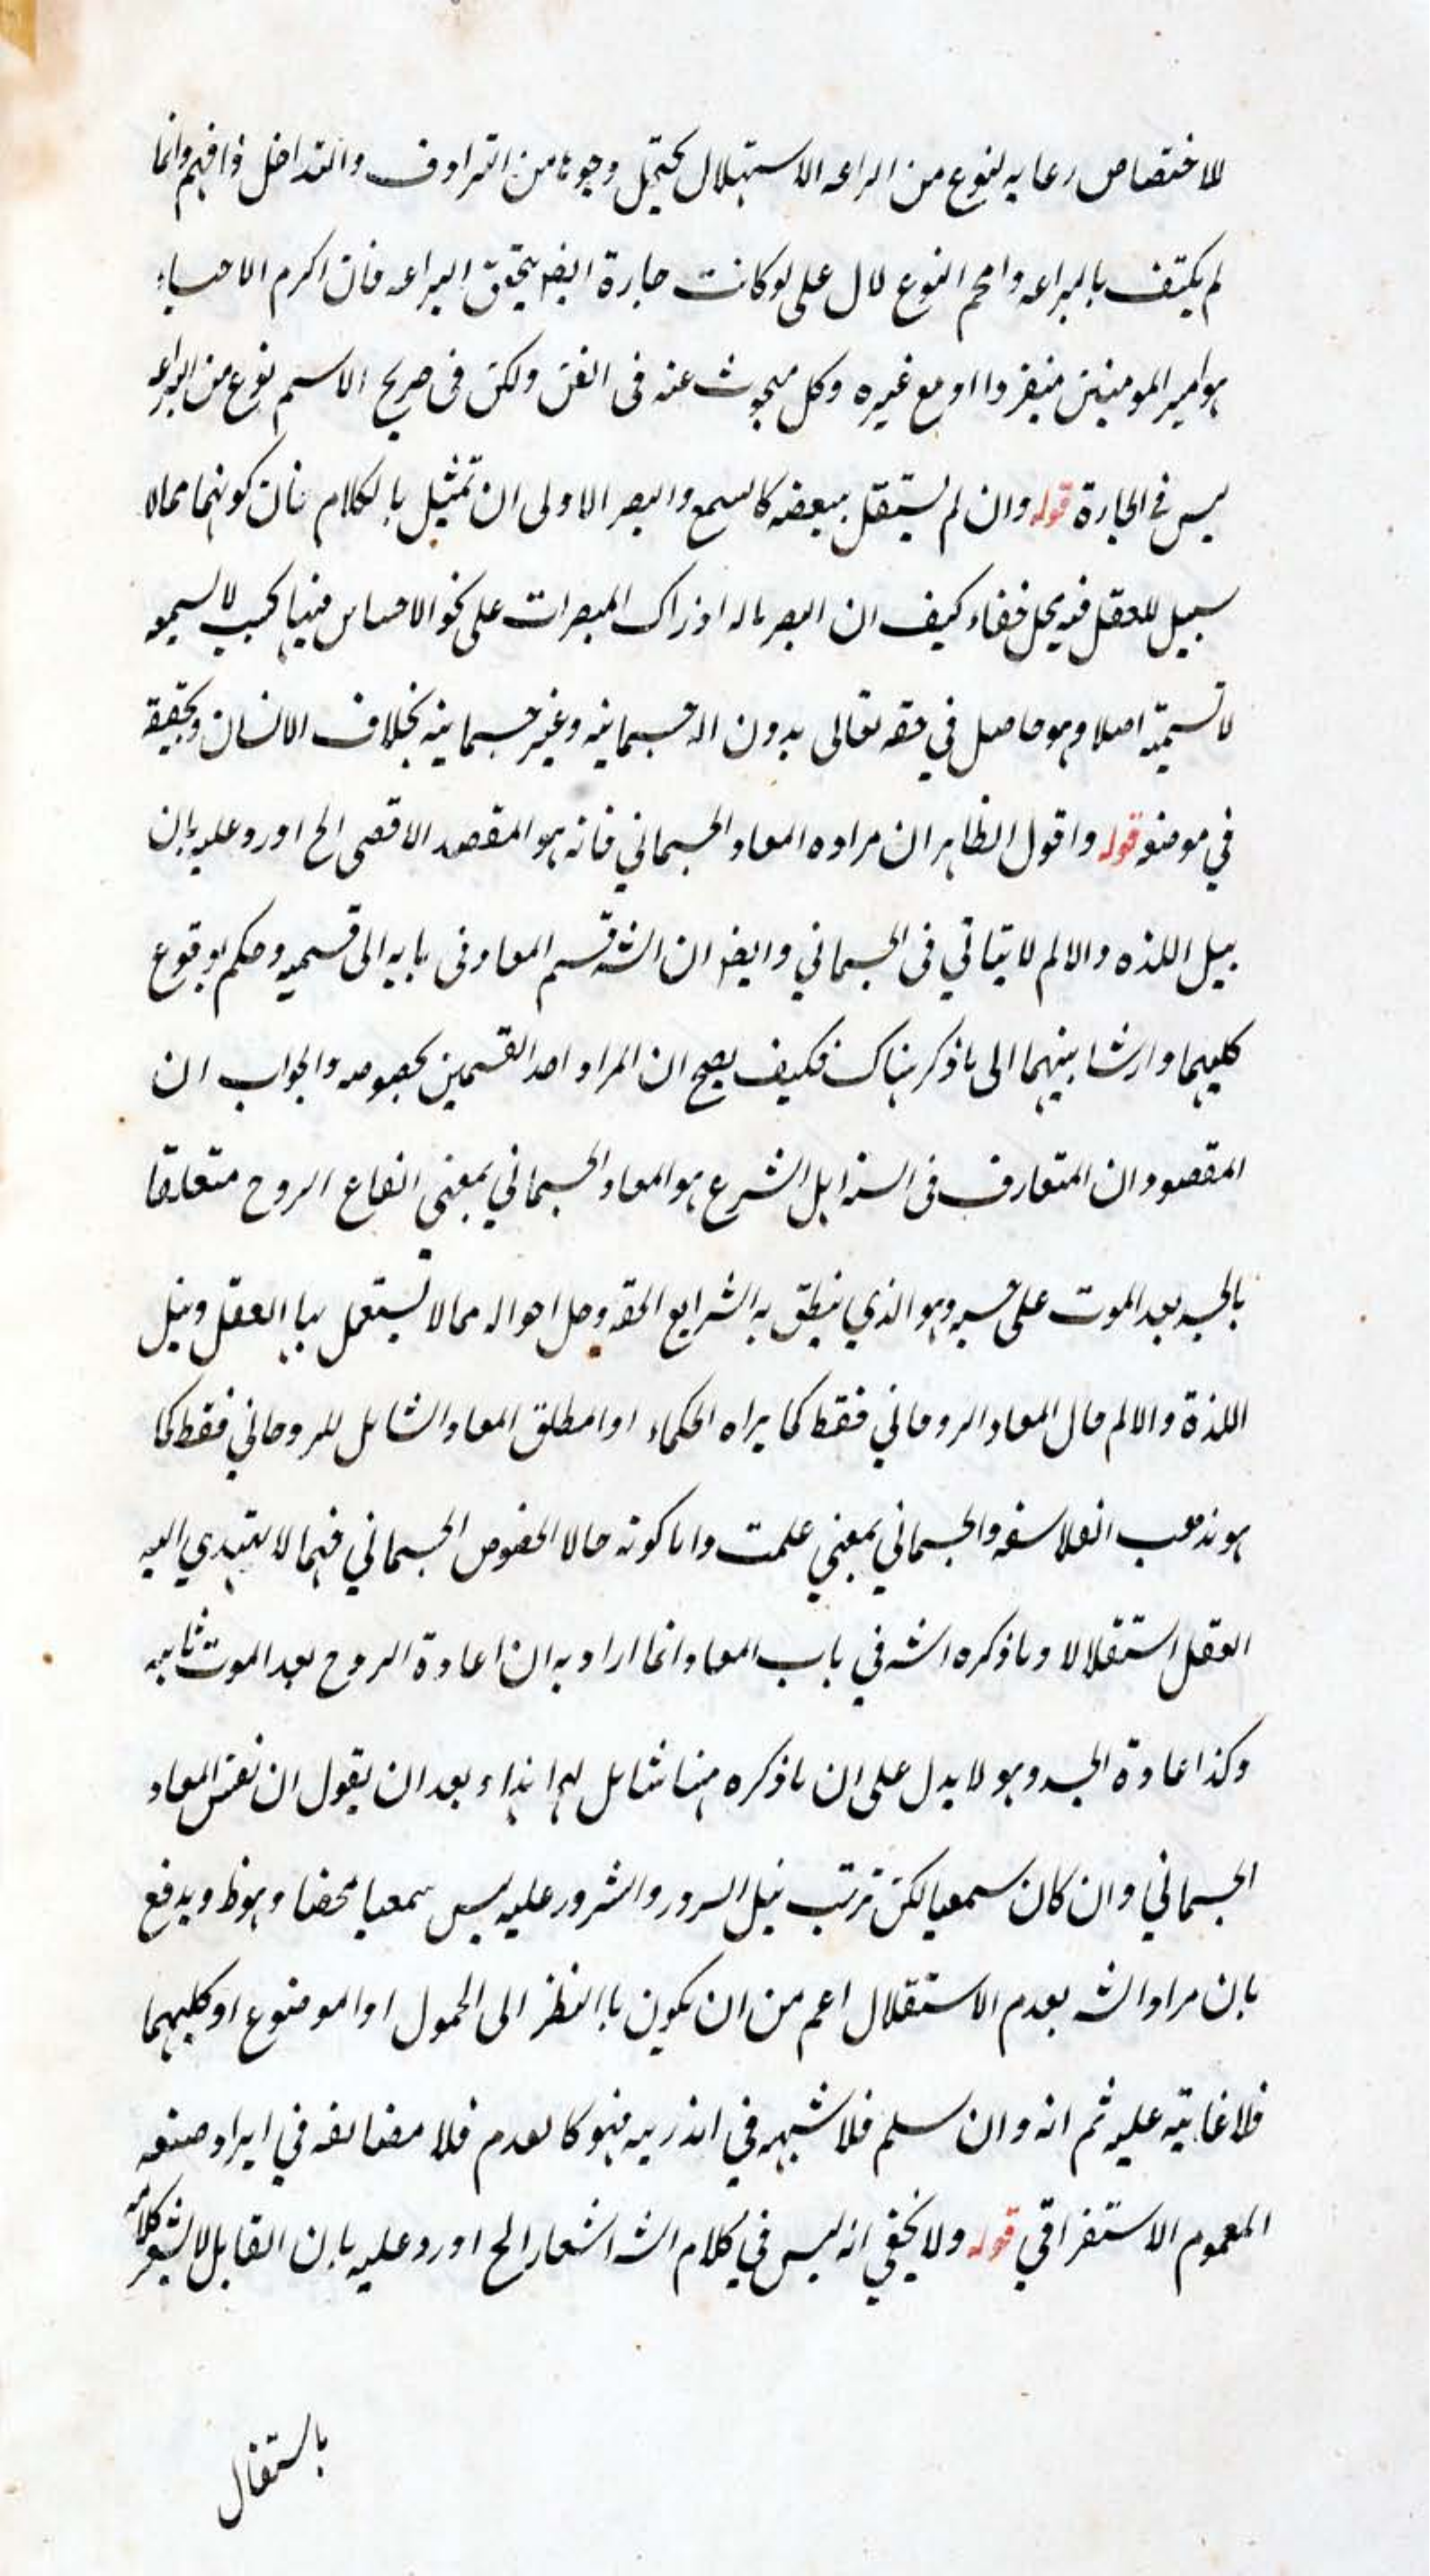 للاختصاص رعايه لنوع من البراعه الاستهلال يحتمل وجوها من الترادف والتداخل فافهم وانما
لم يكتف بالبراعه واقحم النوع لان على لو كانت جارة ايضا يتحقق البراعه فان اكرم الاحباء
هو امير المومنين منفردا او مع غيره وكل مبحوث عنه فى الفن ولكن فى صريح الاسم نوع من البراعه
ليس في الجارة قوله وان لم يستقل ببعضه كالسمع والبصر الاولى ان تمثيل بالكلام فان كونهما ممالا
سبيل للعقل فيه محل خفاء كيف ان البصر ماله ادراك المبصرات على نحو الاحساس فيها بحسب لا لسميه
لا تسميه اصلا وهو حاصل في حقه تعالى بدون اله جسمانيه وغير جسمانيه بخلاف الانسان وتحقيقه
في موضعه قوله واقول الظاهر ان مراده المعاد الجسماني فانه هو المقصد الاقصى الخ اورد عليه بان
بنيل اللذه والالم لا يتاتي فى الجسماني وايضا ان الشه قسم المعاد فى بابه الى قسميه وحكم بوقوع
كليهما وارشا بينهما الى ما ذكر هناك فكيف يصح ان المراد احد القسمين بخصوصه والجواب ان
المقصود ان المتعارف فى السنه اهل الشرع هو المعاد الجسماني بمعني انفاع الروح متعلقا
بالجسد بعد الموت على حسبه وهو الذي ينطق به الشرايع الحقه وجل احواله ممالا تستعمل بها العقل ونيل
اللذة والالم حال المعاد الروحاني فقط كما يراه الحكماء او المطلق المعاد الشامل للروحاني فقط كما
هو مذهب الفلاسفه والجسماني بمعني علمت واما كونه حالا لخصوص الجسماني فهمالا يهتدي اليه
العقل استقلالا وما ذكره الشه في باب المعاد انما اراد به ان اعادة الروح بعد الموت ثابته
وكذا اعادة الجسد وهو لا يدل على ان ما ذكره هنا شامل لهما هذاء بعد ان يقول ان نفس المعاد
الجسماني وان كان سمعيا لكن ترتب نيل السرور والشرور عليه ليس سمعيا محضا وهو ظ ويدفع
بان مراد الشه بعدم الاستقلال اعم من ان يكون باالنظر الى المحمول او الموضوع او كليهما
فلا غايته عليه ثم انه وان سلم فلا شبهه في اندريه فهو كالعدم فلا مضايقه في ايراد صنعه
المعموم الاستغراقي قوله ولا يخفي انه ليس في كلام الشه اشعار الخ اورد عليه بان القايل لا يشعر كلامه
باستقلال